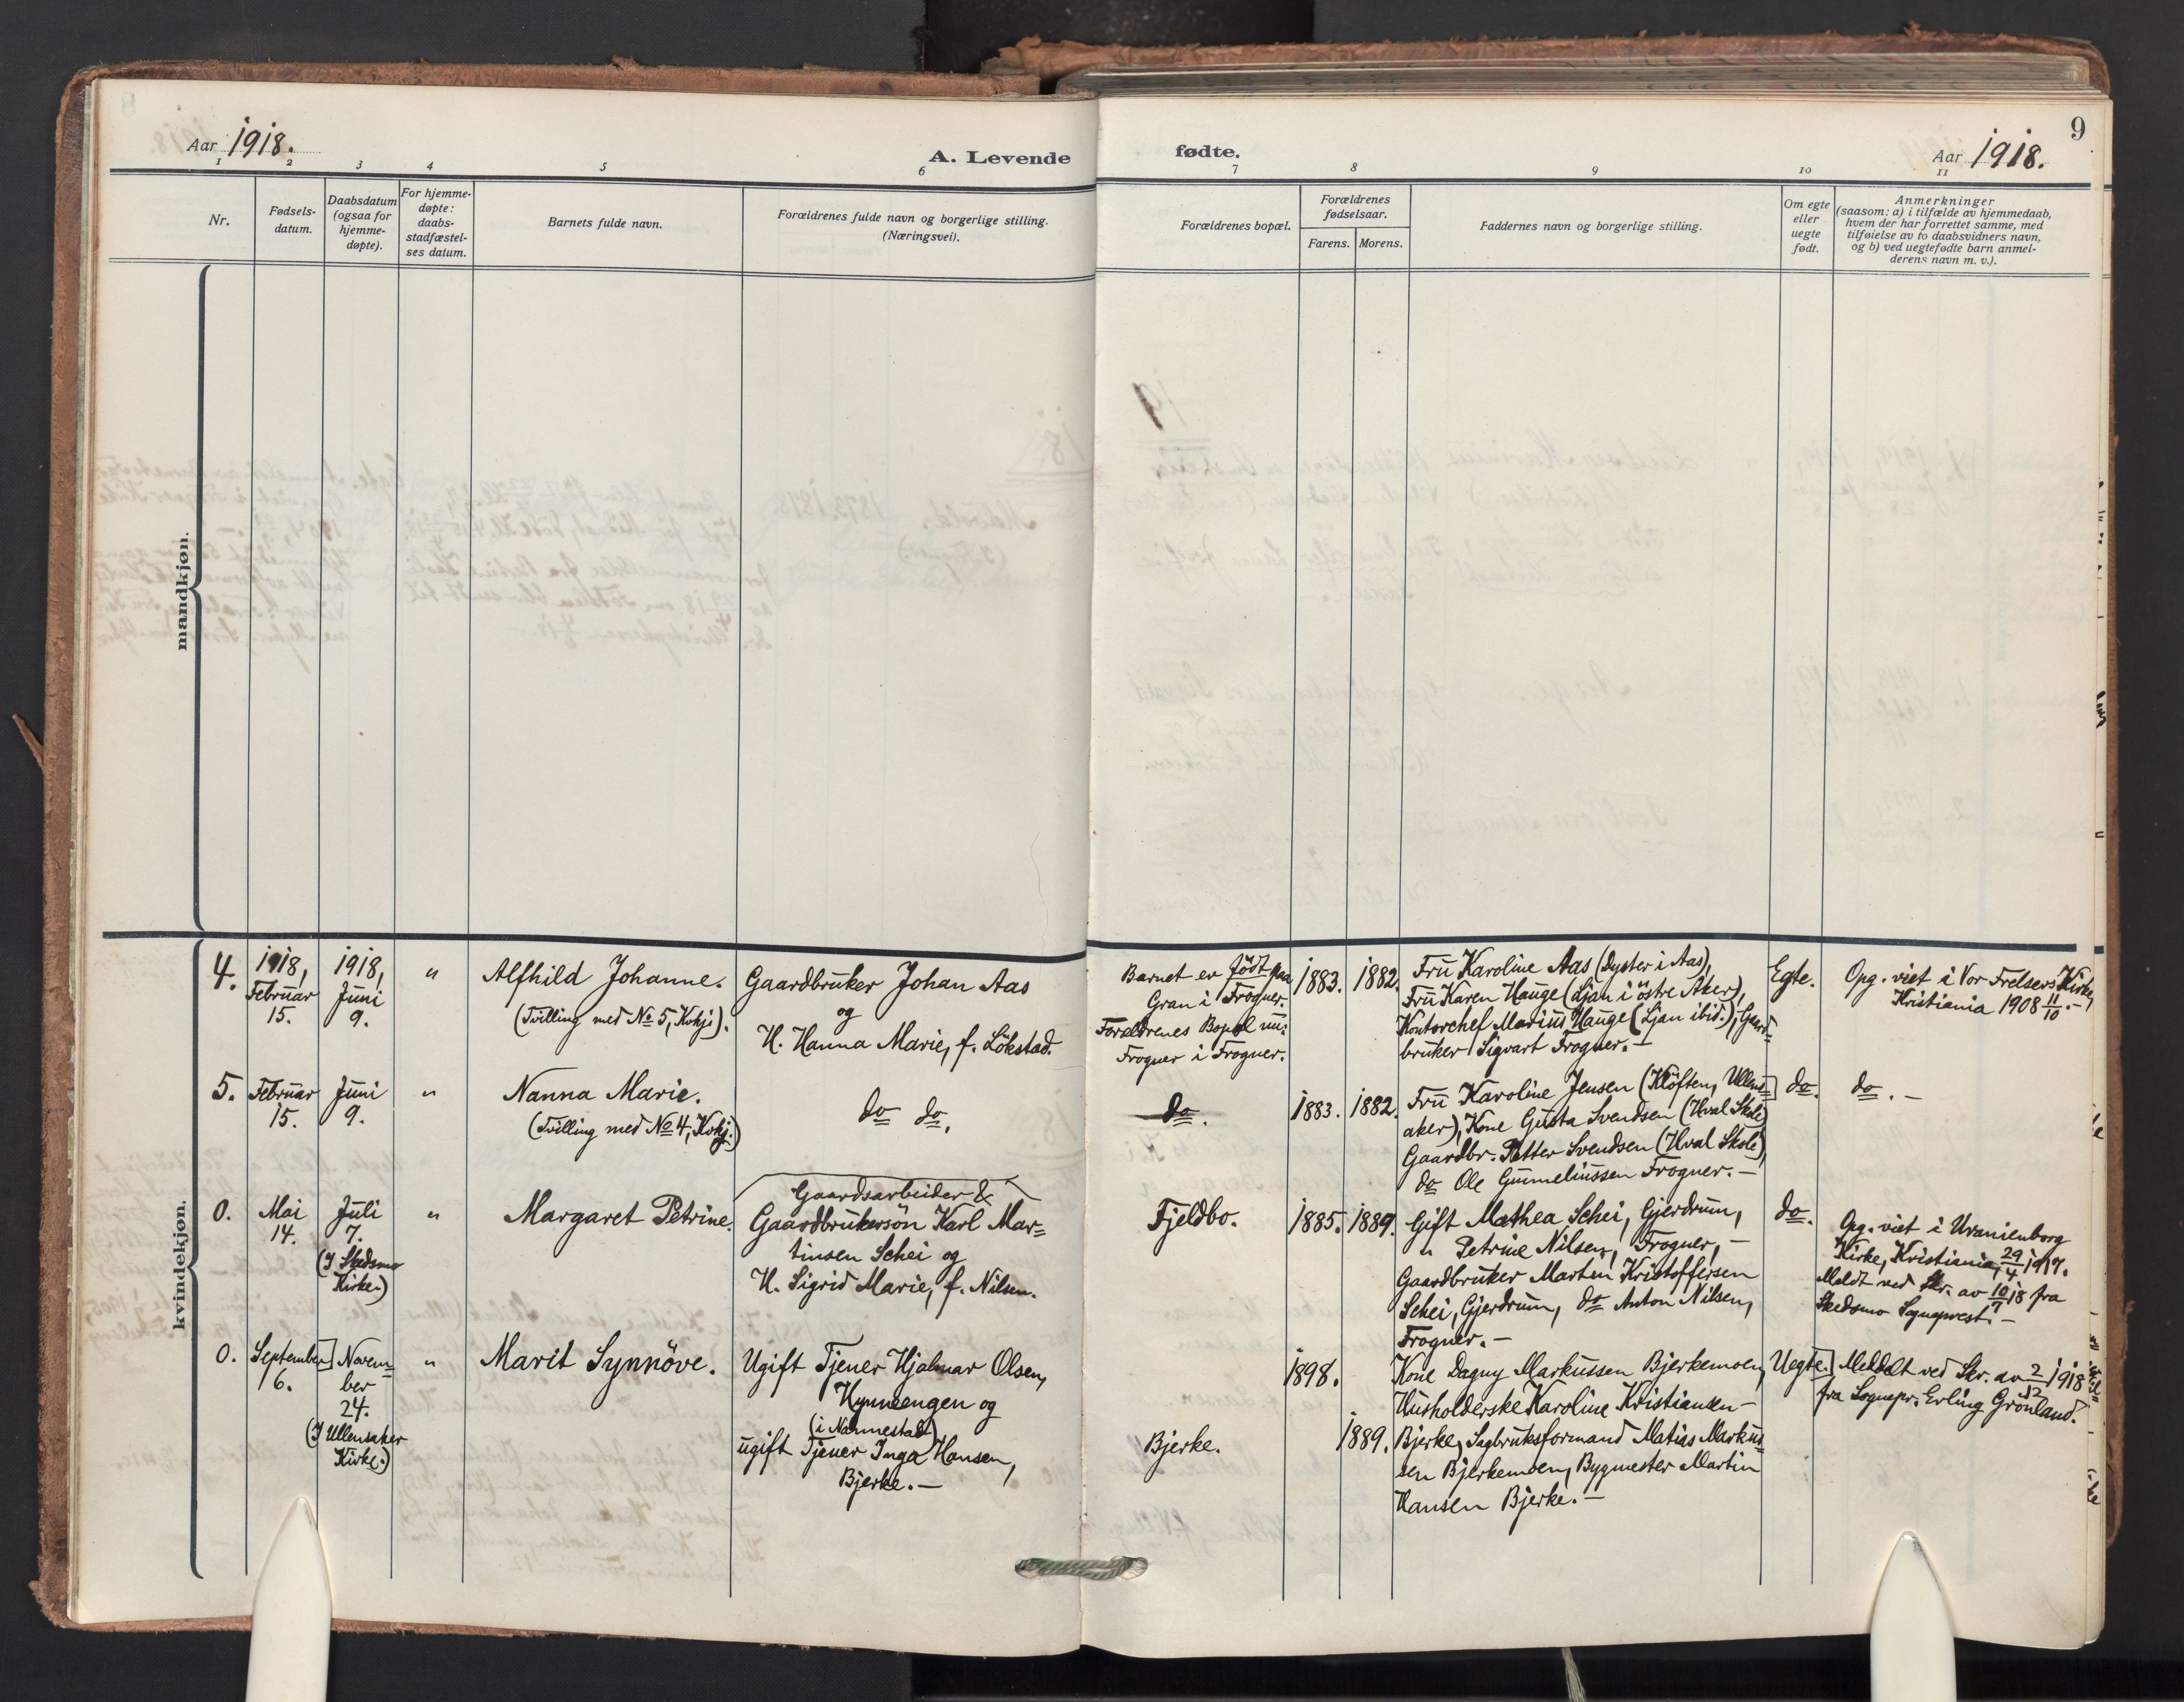 Aar 1918.
A. Levende
fødte.
Aar 1918.
9
1 2 3 4 5 6 7 8 9 10 11
Nr.
Fødsels-
datum.
Daabsdatum
(ogsaa for
hjemme-
døpte).
For hjemme-
døpte:
daabs-
stadfæstel-
ses datum.
Barnets fulde navn.
Forældrenes fulde navn og borgerlige stilling.
(Næringsvei).
Forældrenes bopæl.
Forældrenes
fødselsaar.
Farens. Morens.
Faddernes navn og borgerlige stilling.
Om egte
eller
uegte
født.
Anmerkninger
(saasom: a) i tilfælde av hjemmedaab,
hvem der har forrettet samme, med
tilføielse av to daabsvidners navn,
og b) ved uegtefødte barn anmel-
derens navn m. v.).
mandkjøn.
kvindekjøn.
4.
1918,
Februar
15.
1918,
Juni
9.
"
Alfhild Johanne.
(Tvilling med No 5, Kvkj.).
Gaardbruker Johan Aas
og
H. Hanna Marie, f. Lökstad.
Barnet er født paa
Gran i Frogner.
Foreldrenes Bopæl nu:
Frogner i Frogner.
1883.
1882.
Fru Karoline Aas (Dyster i Aas),
Fru Karen Hauge (Ljan i östre Aker),
Kontorchef Marius Hauge (Ljan ibid.), Gaard=
bruker Sigvart Frogner. -
Egte.
Opg. viet i Vor Frelsers Kirke,
Kristiania 1908 11/10. -
5.
Februar
15.
Juni
9.
"
Nanna Marie.
(Tvilling med No 4, Kvkj.)
do do.
do.
1883.
1882.
Fru Karoline Jensen (Klöften, Ullens=
aker), Kone Gusta Svendsen (Hval Skole)
Gaardbr. Petter Svendsen (Hval Skole),
do Ole Gummeliussen Frogner. -
do.
do. -
0.
Mai
14.
Juli
7.
(I Skedsmo
Kirke.)
"
Margaret Petrine.
Gaardsarbeider &
Gaardbrukersön Karl Mar=
tinsen Schei og
H. Sigrid Marie, f. Nilsen.
Fjeldbo.
1885.
1889.
Gift Mathea Schei, Gjerdrum,
" Petrine Nilsen, Frogner, -
Gaardbruker Marten Kristoffersen
Schei, Gjerdrum, do Anton Nilsen,
Frogner. -
do.
Opg. viet i Uranienborg
Kirke, Kristiania, 29/4 1917.
Meldt ved Skr. av 10/7 18 fra
Skedsmo Sogneprest. -
0.
September
6.
Novem=
ber
24.
(I Ullensaker
Kirke.)
"
Marit Synnöve.
Ugift Tjener Hjalmar Olsen,
(i Nannestad)
ugift Tjener Inga Hansen,
Bjerke. -
Bjerke.
1898.
1889.
Kone Dagny Markussen Bjerkemoen,
Husholderske Karoline Kristiansen -
Bjerke, Sagbruksformand Matias Markus=
sen Bjerkemoen, Bygmester Martin
Hansen Bjerke. -
Uegte.
Meddelt ved Skr. av 2/12 1918
fra Sognepr. Erling Grönland.